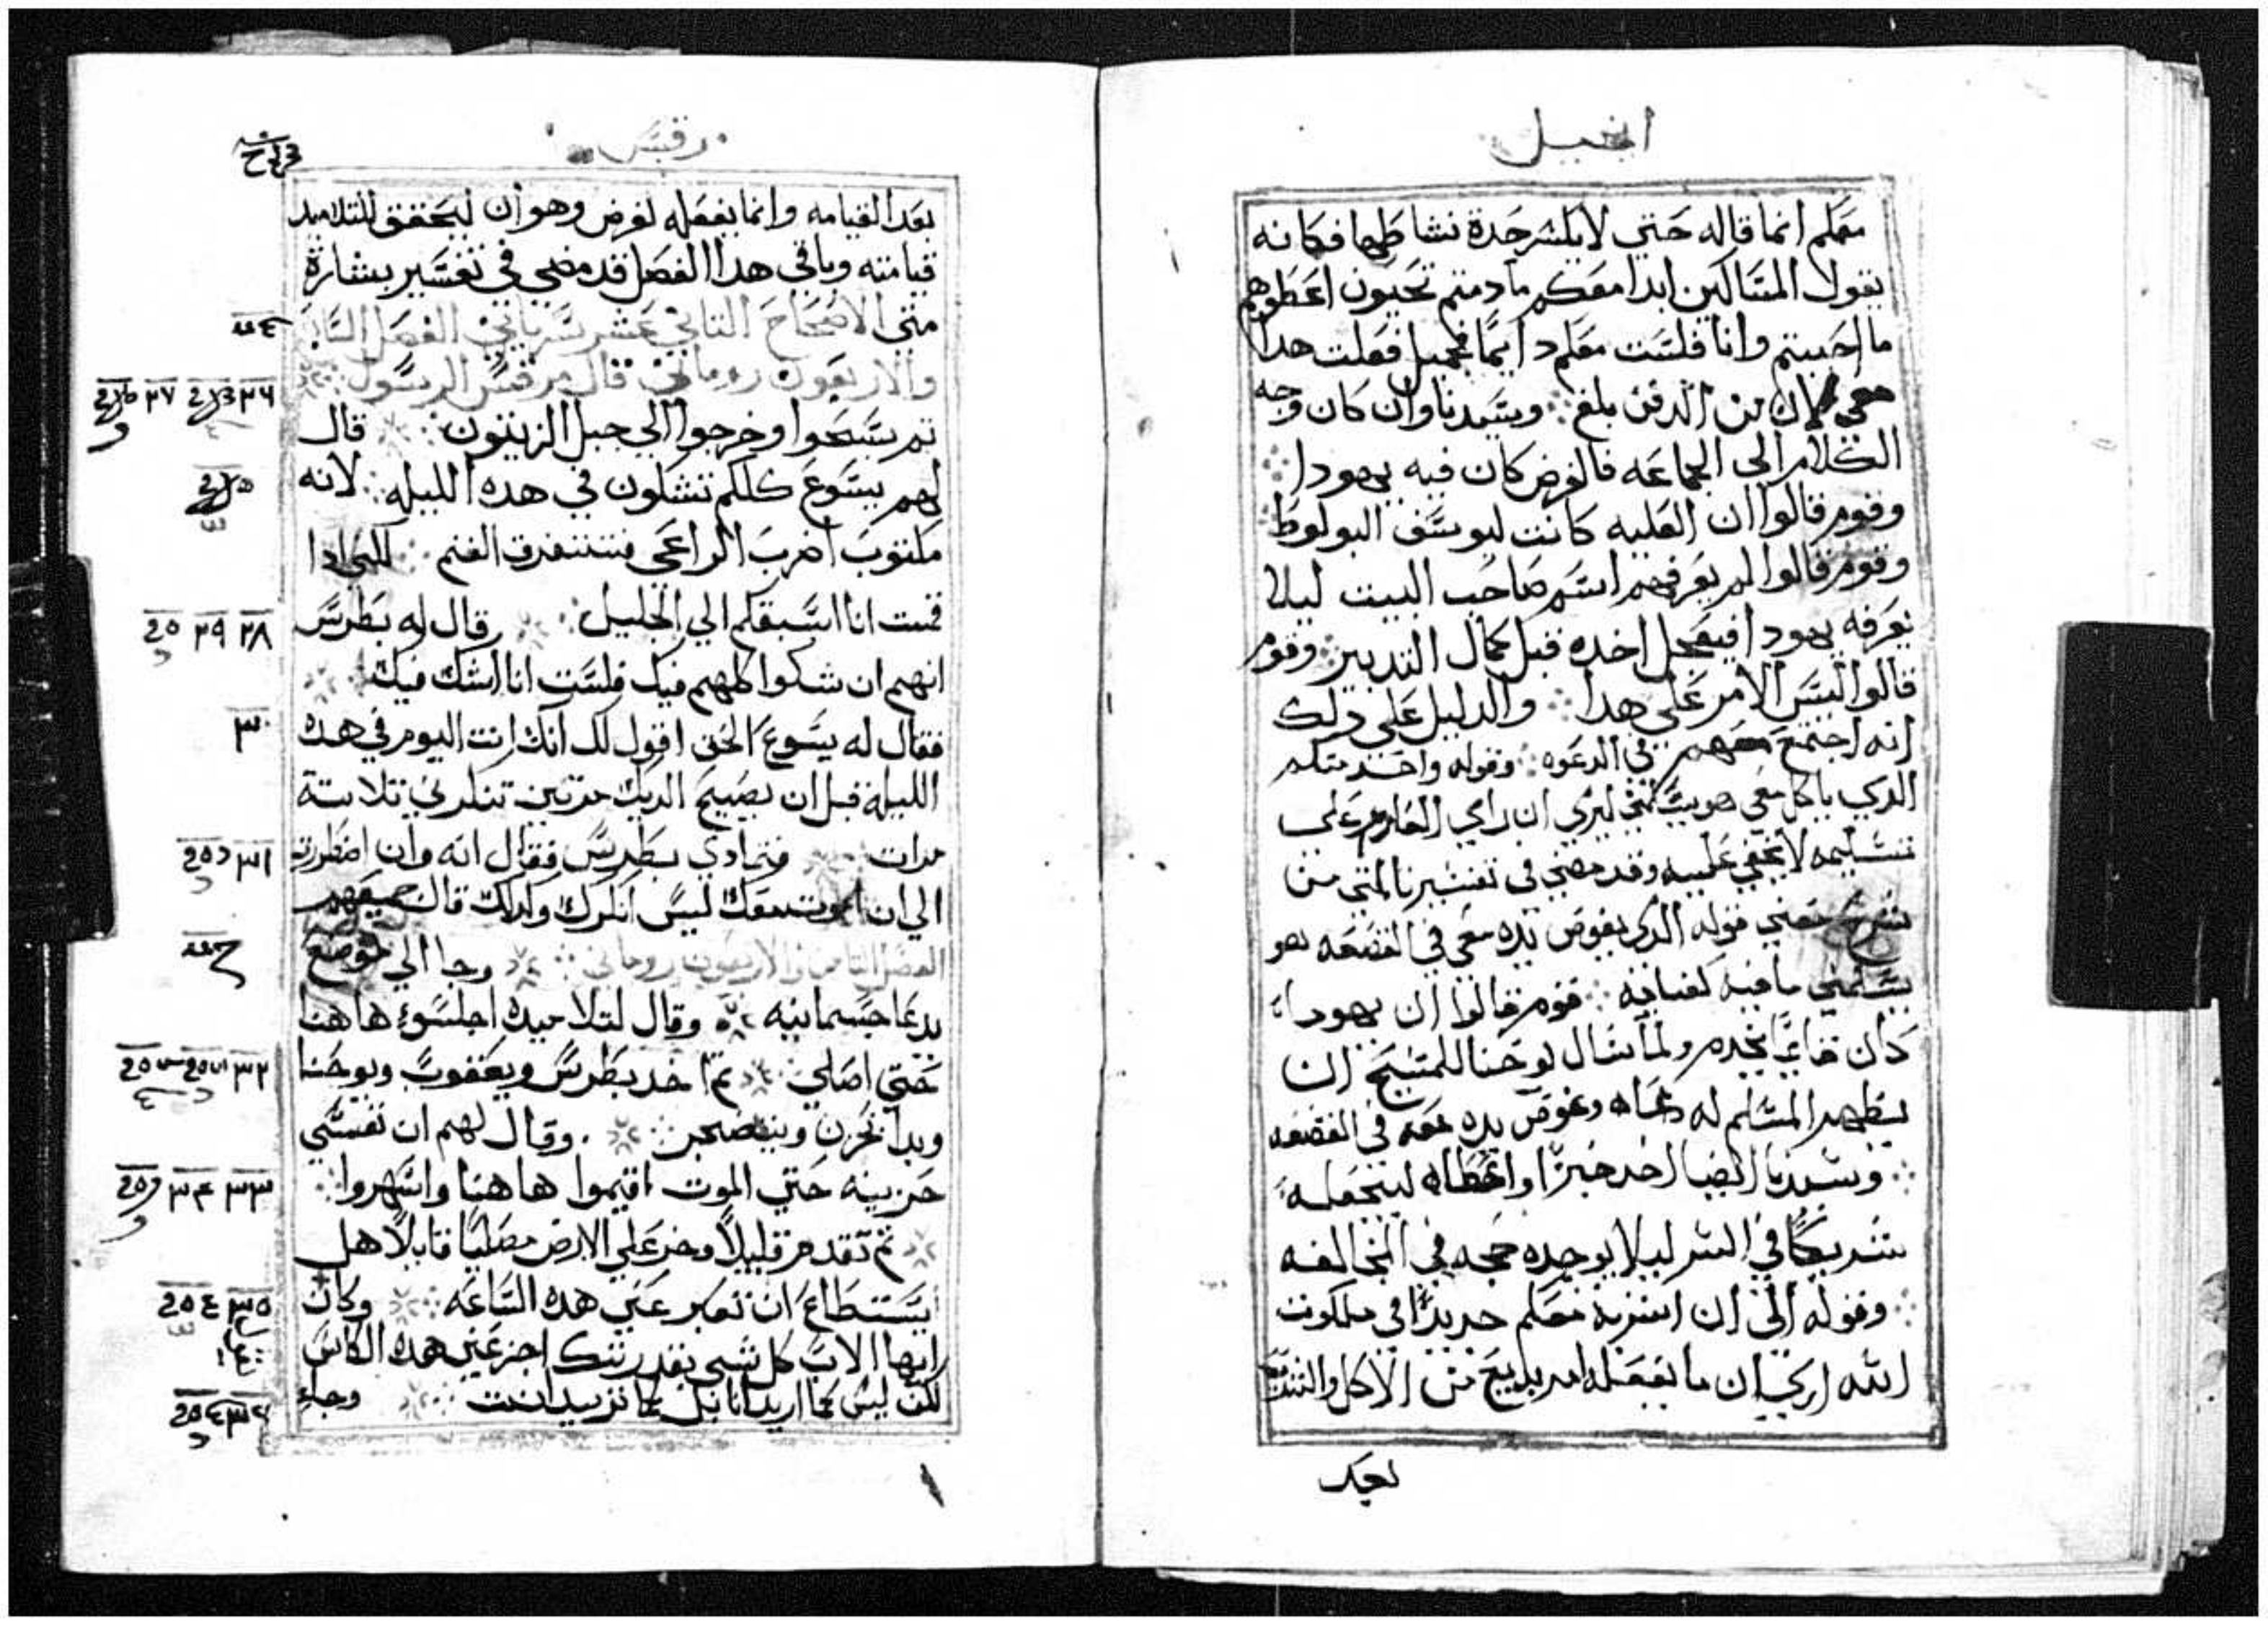 انجيل
معكم انما قاله حتي لا يكسر حدة نشاطهما فكانه
يقول المساكين ابدا معكم ما دمتم تحبون اعطوهم
ما احببتم وانا فلست معكم دايمًا فجميل فعلت هدا
معي لان من الدفن بلغ وسيدنا وان كان وجه
الكلام الي الجماعه فالغرض كان فيه يهودا
وقوم قالوا ان العليه كانت ليوسف البولوطا
وقوم قالوا لم يعرفهم اسم صاحب البيت ليلا
يعرفه يهودا فيعجل اخده قبل كمال التدبير وقوم
قالوا ليس الامر علي هدا والدليل علي دلك
انه اجتمع معهم في الدعوه وقوله واحد منكم
الدي ياكل معي هو يسلمني ليري ان راي العازم علي
تسليمه لا يخفي عليه وقد مضي في تفسيرنا لمتي من
شرح معني قوله الدي يغوص يده معي في القصعه هو
يسلمني ما فيه كفايه قوم قالوا ان يهودا
كان قايمًا يخدم ولما سال يوحنا للمسيح ان
يظهر المسلم له دعاه وغوص يده معه في القصعه
وسيدنا ايضا اخد خبزًا واعطاه ليجعله
شريكًا في السر ليلا يوجده حجه في المخالفه
وقوله الي ان اشربه معكم جديدًا في ملكوت
الله اري ان ما يفعله امر بديع من الاكل والشرب
بعد
مرقس
بعد القيامه وانما يفعله لغرض وهو ان ليحقق للتلاميد
قيامته وباقي هدا الفصل قد مضي في تفسير بشارة
متي الاصحاح الثاني عشر سرياني الفصل السابع
والاربعون روماني قال مرقس الرسول
تم يسبحوا وخرجوا الي جبل الزيتون قال
لهم يسوع كلكم تشكون في هده الليله لانه
مكتوب اضرب الراعي فستتفرق الغنم لكن ادا
قمت انا اسبقكم الي الجليل قال له بطرس
انهم ان شكوا كلهم فيك فلست انا اشك فيك
فقال له يسوع الحق اقول لك انك انت اليوم في هده
الليله قبل ان يصيح الديك مرتين تنكرني تلاتة
مرات فتمادي بطرس فقال انه وان اضطررت
الي ان اموت معك ليس انكرك وكدلك قال جميعهم
الفصل التامن والاربعون روماني وجا الي موضع
يدعا جسمانيه وقال لتلاميده اجلسوا هاهنا
حتي اصلي تم اخد بطرس ويعقوب ويوحنا
وبدا يحزن ويتضجر وقال لهم ان نفسي
حزينه حتي الموت اقيموا هاهنا واسهروا
تم تقدم قليلًا وخر علي الارض مصليًا قايلًا هل
يستطاع ان تعبر عني هده الساعه وكان
ايها الاب كل شي بقدرتك اجز عني هده الكاس
لكن ليس كما اريد انا بل كما تريد انت وجاء
٢٦ ٢٧
٢٨ ٢٩
٣٠
٣١
٣٢
٣٣ ٣٤
٣٥
٣٦